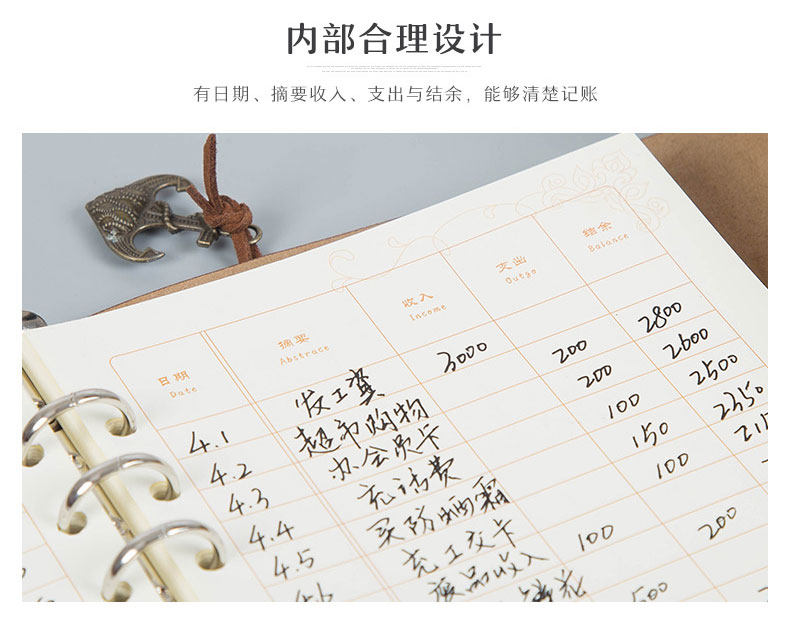 内部合理设计
有日期、摘要收入、支出与结余，能够清楚记账
日期 摘要 收入 支出 结余
Date Abstrace Income Outgo Balance
4.1 发工资 3000
4.2 超市购物 200 2800
4.3 办会员卡 200 2600
4.4 充话费 100 2500
4.5 买防晒霜 150 2350
4.6 充工交卡 100
废品收入 100
花 200